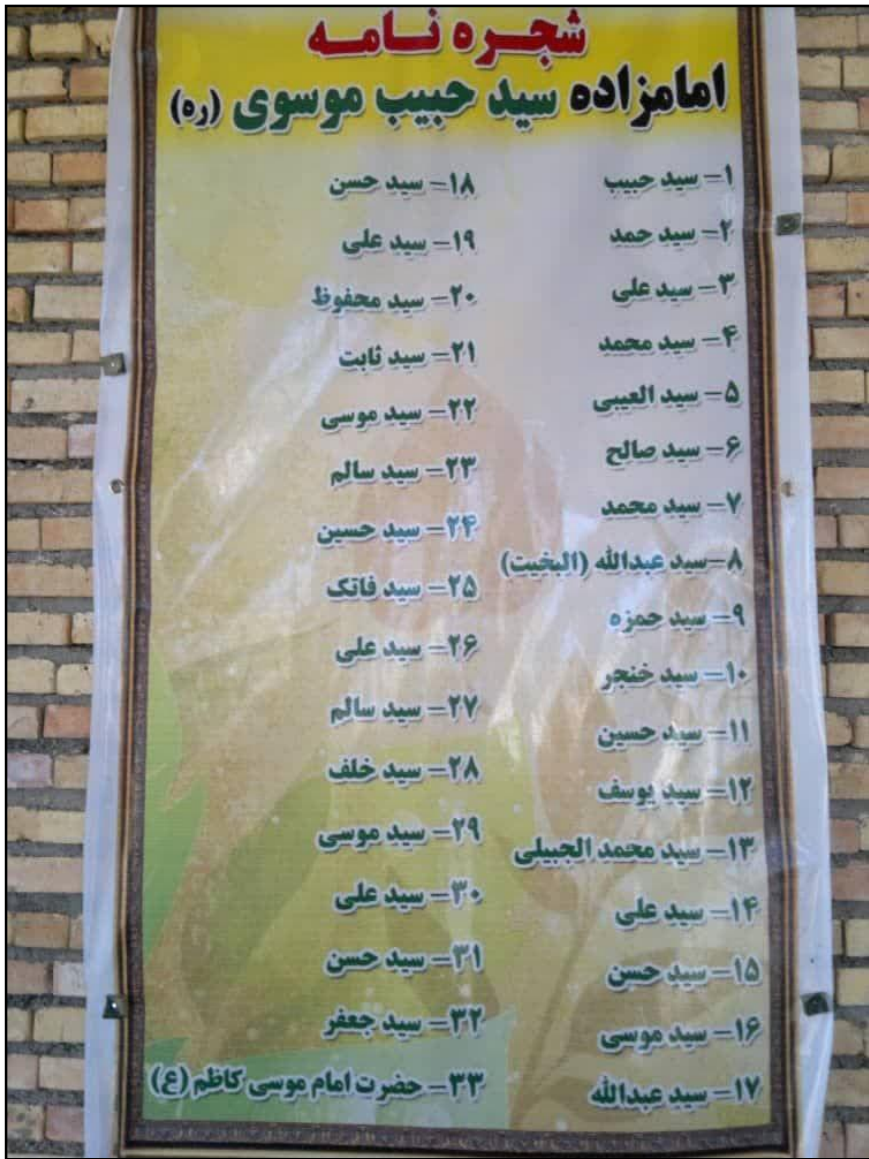 شجره نامه
امامزاده سید حبیب موسوی (ره)
۱- سید حبیب
۲- سید حمد
۳- سید علی
۴- سید محمد
۵- سید العیبی
۶- سید صالح
۷- سید محمد
۸- سید عبدالله (البخیت)
۹- سید حمزه
۱۰- سید خنجر
۱۱- سید حسین
۱۲- سید یوسف
۱۳- سید محمد الجبیلی
۱۴- سید علی
۱۵- سید حسن
۱۶- سید موسی
۱۷- سید عبدالله
۱۸- سید حسن
۱۹- سید علی
۲۰- سید محفوظ
۲۱- سید ثابت
۲۲- سید موسی
۲۳- سید سالم
۲۴- سید حسین
۲۵- سید فاتک
۲۶- سید علی
۲۷- سید سالم
۲۸- سید خلف
۲۹- سید موسی
۳۰- سید علی
۳۱- سید حسن
۳۲- سید جعفر
۳۳- حضرت امام موسی کاظم (ع)